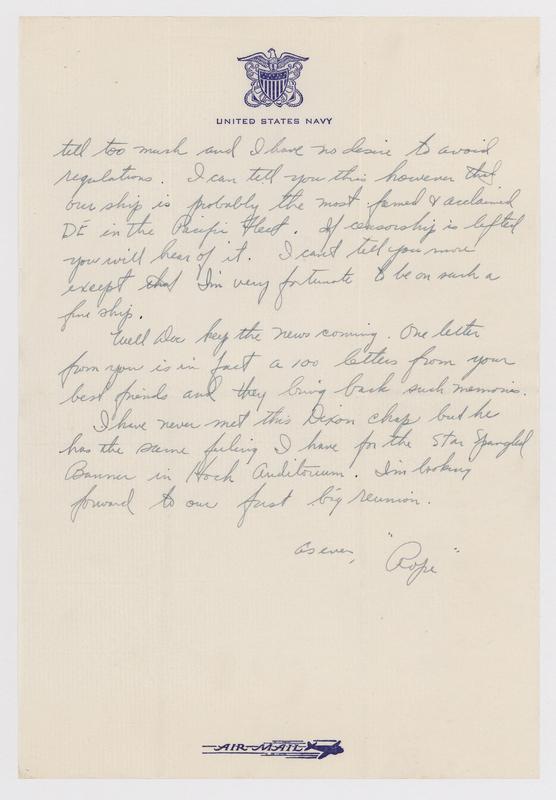 UNITED STATES NAVY
tell too much and I have no desire to avoid
regulations. I can tell you this however that
our ship is probably the most famed & acclaimed
DE in the Pacific Fleet. If censorship is lifted
you will hear of it. I can't tell you more
except that I'm very fortunate to be on such a
fine ship.
Well Doc keep the news coming. One letter
from you is in fact a 100 letters from your
best friends and they bring back such memories.
I have never met this Dixon chap but he
has the same feeling I have for the Star Spangled
Banner in Hoch Auditorium. I'm looking
forward to our first big reunion.
As ever,
"Rope"
AIR MAIL